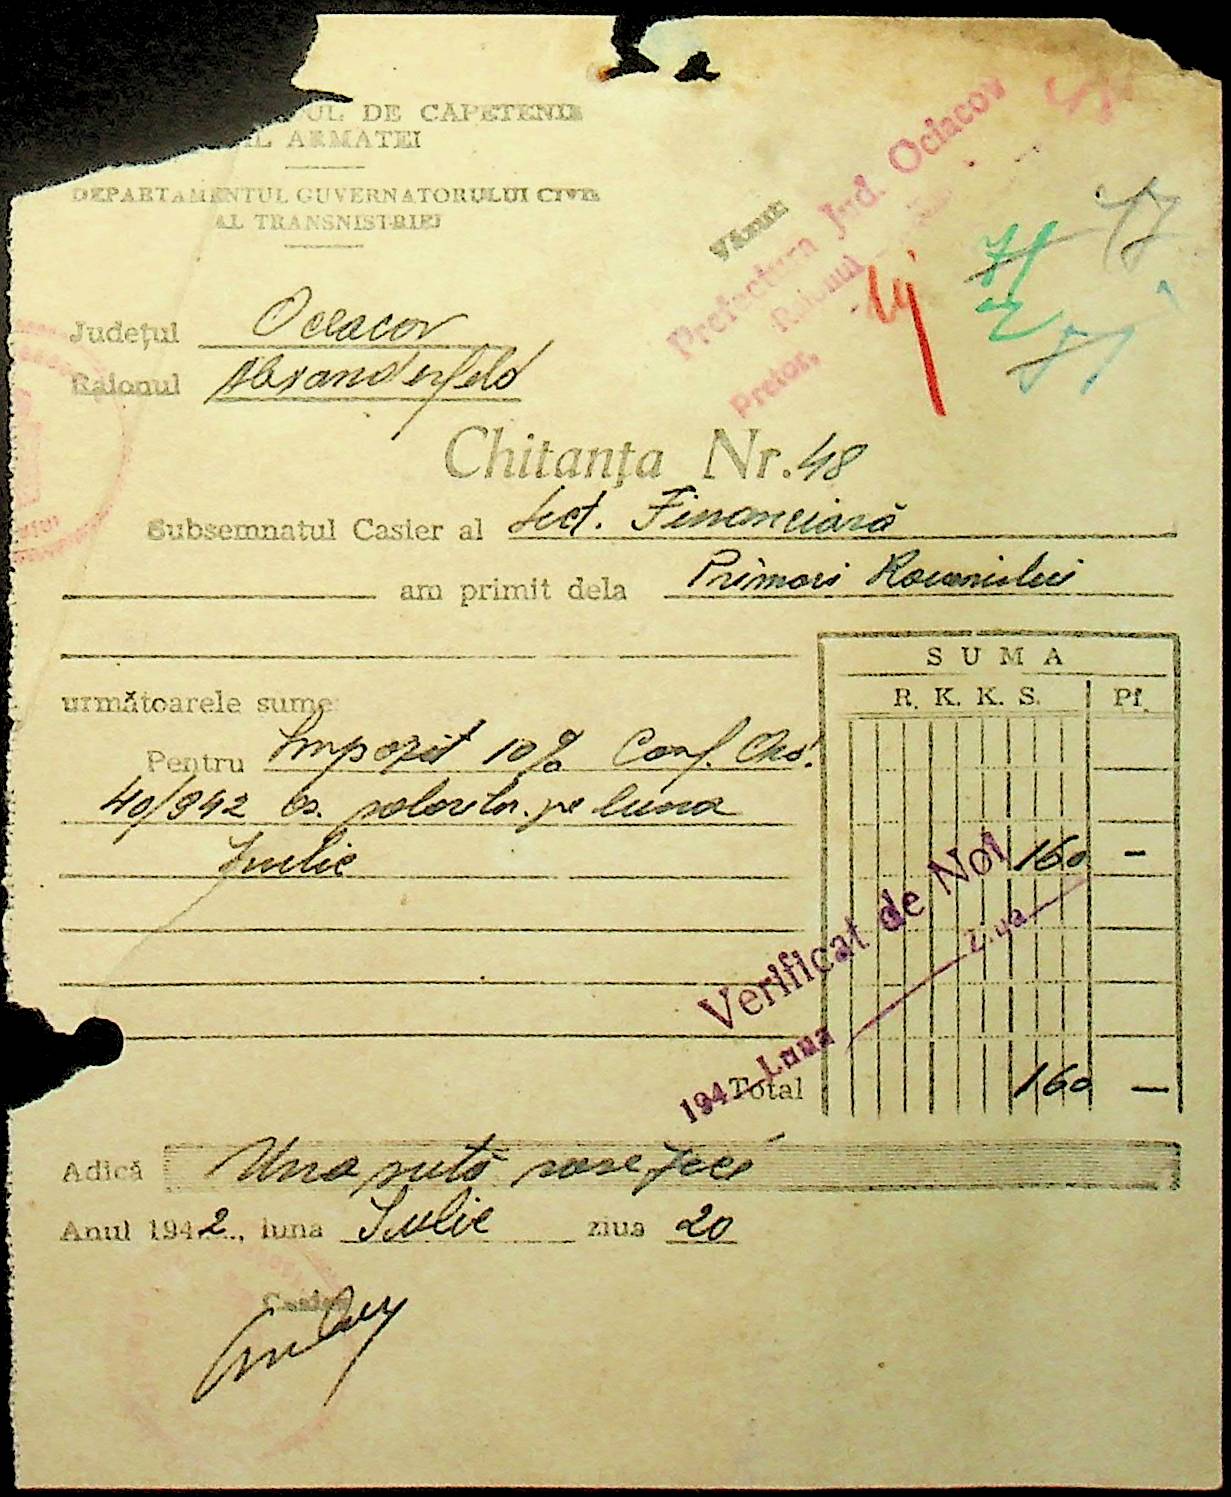 UL DE CAPETENIE
AL ARMATEI
DEPARTAMENTUL GUVERNATORULUI CIVIL
AL TRANSNISTRIEI
Văzut:
Prefectura Jud. Ociacov
Raionul
Pretor,
71
Județul Oceacov
Raionul Alexanderfeld
Chitanța Nr. 48
Subsemnatul Casier al Sect. Financiară
am primit dela Primari
SUMA
R. K. K. S. Pf.
următoarele sume:
Pentru Impozit 10% Conf. Ord.
40/942 pe luna
Iulie 160 —
Verificat de Noi
194 Luna Ziua
Total 160 —
Adică Una sută șase zeci
Anul 1942, luna Iulie ziua 20
Casier